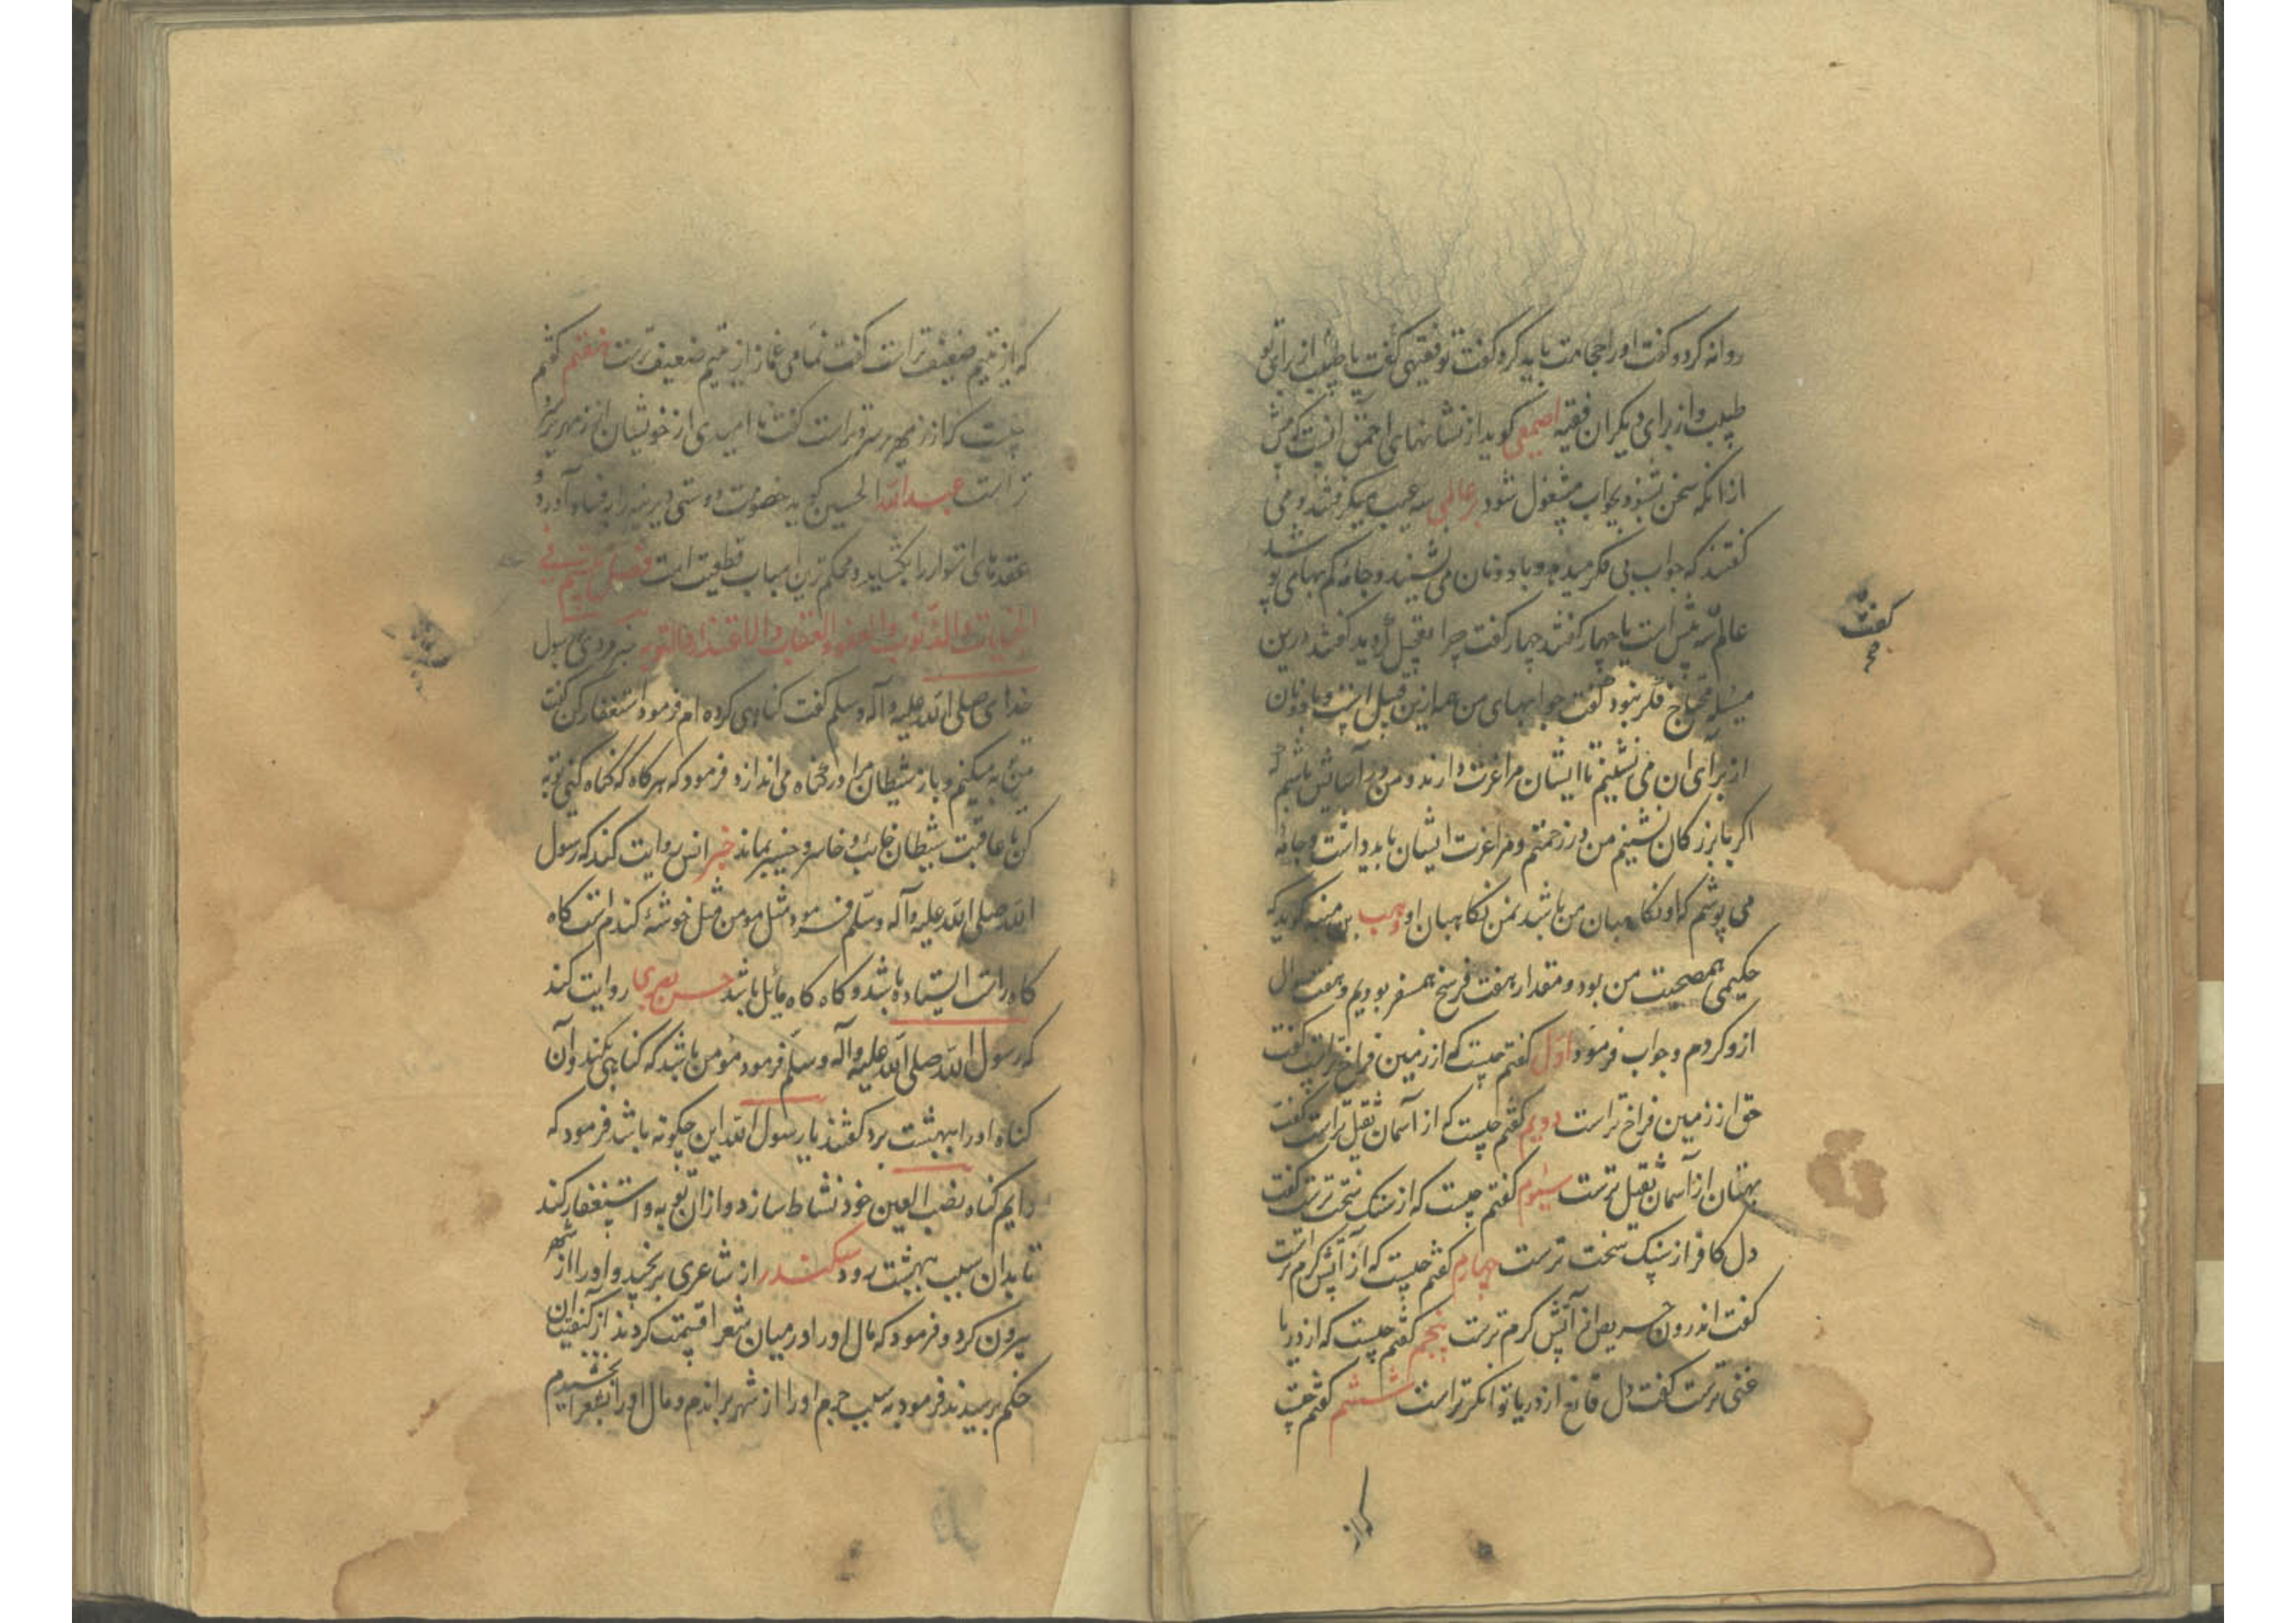 روانه کرد و کفت او را حجامت باید کرد کفت تو فقیهی کفت یا طبیب از برای تو
طبیب و از برای دیکران فقیه اصمعی کوید از نشانهای احمق انست که پیش
از انکه سخن بشنود بجواب مشغول شود بر عالمی سه عیب میکرفتند و می
کفتند که جواب بی فکر میدهد و با دونان می نشیند و جامه کم بهای پوشد
عالم سه پیش است یا چهار کفتند چهار کفت چرا تعجیل کردید کفتند درین
مسئله محتاج فکر نبود کفت جوابهای من همه ازین قبیل است و با دونان
از برای ان می نشینم تا ایشان مرا عزت دارند و من در آسایش باشم که
اکر با بزرکان نشینم من در زحمتم و مرا عزت ایشان باید داشت و جامه
می پوشم که او نکاهبان من باشد نه من نکاهبان او وهب بن منبه کوید که
حکیمی همصحبت من بود و مقدار هفت فرسخ همسفر بودیم و هفت سوال
ازو کردم و جواب فرمود اول کفتم چیست که از زمین فراخ تر است کفت
حق از زمین فراخ تر است دویم کفتم چیست که از آسمان ثقیل تر است کفت
بهتان از آسمان ثقیل ترست سیوم کفتم چیست که از سنک سخت ترست کفت
دل کافر از سنک سخت ترست چهارم کفتم چیست که از آتش کرم تر است
کفت اندرون حریص از آتش کرم ترست پنجم کفتم چیست که از دریا
غنی ترست کفت دل قانع از دریا توانکرتر است ششم کفتم چیست
که از
کفت
که از یتیم ضعیف تر است کفت نمامی غماز از یتیم ضعیف ترست هفتم کفتم
چیست که از زمهریر سردتر است کفت نا امیدی از خویشان از زمهریر سرد
تر است عبد الله الحسین کوید خصومت دوستی دیرینه را بفساد آورد و
عقدهای استوار را بکشاید و محکم ترین اسباب قطیعت است فصل بیستم فی
الجنایات والذنوب والعفو والعقاب والاعتذار والتوبه خبر مردی رسول
خدای صلی الله علیه و آله وسلم کفت کناهی کرده ام فرمود استغفار کن کفت
من توبه میکنم و باز شیطان مرا در کناه می اندازد فرمود که هر کاه که کناه کنی توبه
کن تا عاقبت شیطان خائب و خاسر و حسیر بماند خبر انس روایت کند که رسول
الله صلی الله علیه و آله وسلم فرمود مثل مومن مثل خوشه کندم است کاه
کاه راست ایستاده باشد و کاه کاه مائل باشد حسن بصری روایت کند
که رسول الله صلی الله علیه و آله وسلم فرمود مؤمن باشد که کناهی بکند و آن
کناه او را ببهشت برد کفتند یا رسول الله این چکونه باشد فرمود که
دایم کناه نصب العین خود نشاط سازد و از ان توبه و استغفار کند
تا بدان سبب بهشت رود سکندر از شاعری برنجید و او را از شهر
بیرون کرد و فرمود که مال او را در میان شعرا قسمت کردند از کیفیت ان
حکم پرسیدند فرمود به سبب جرم او را از شهر براندم و مال او را بشعرا بخشیدم